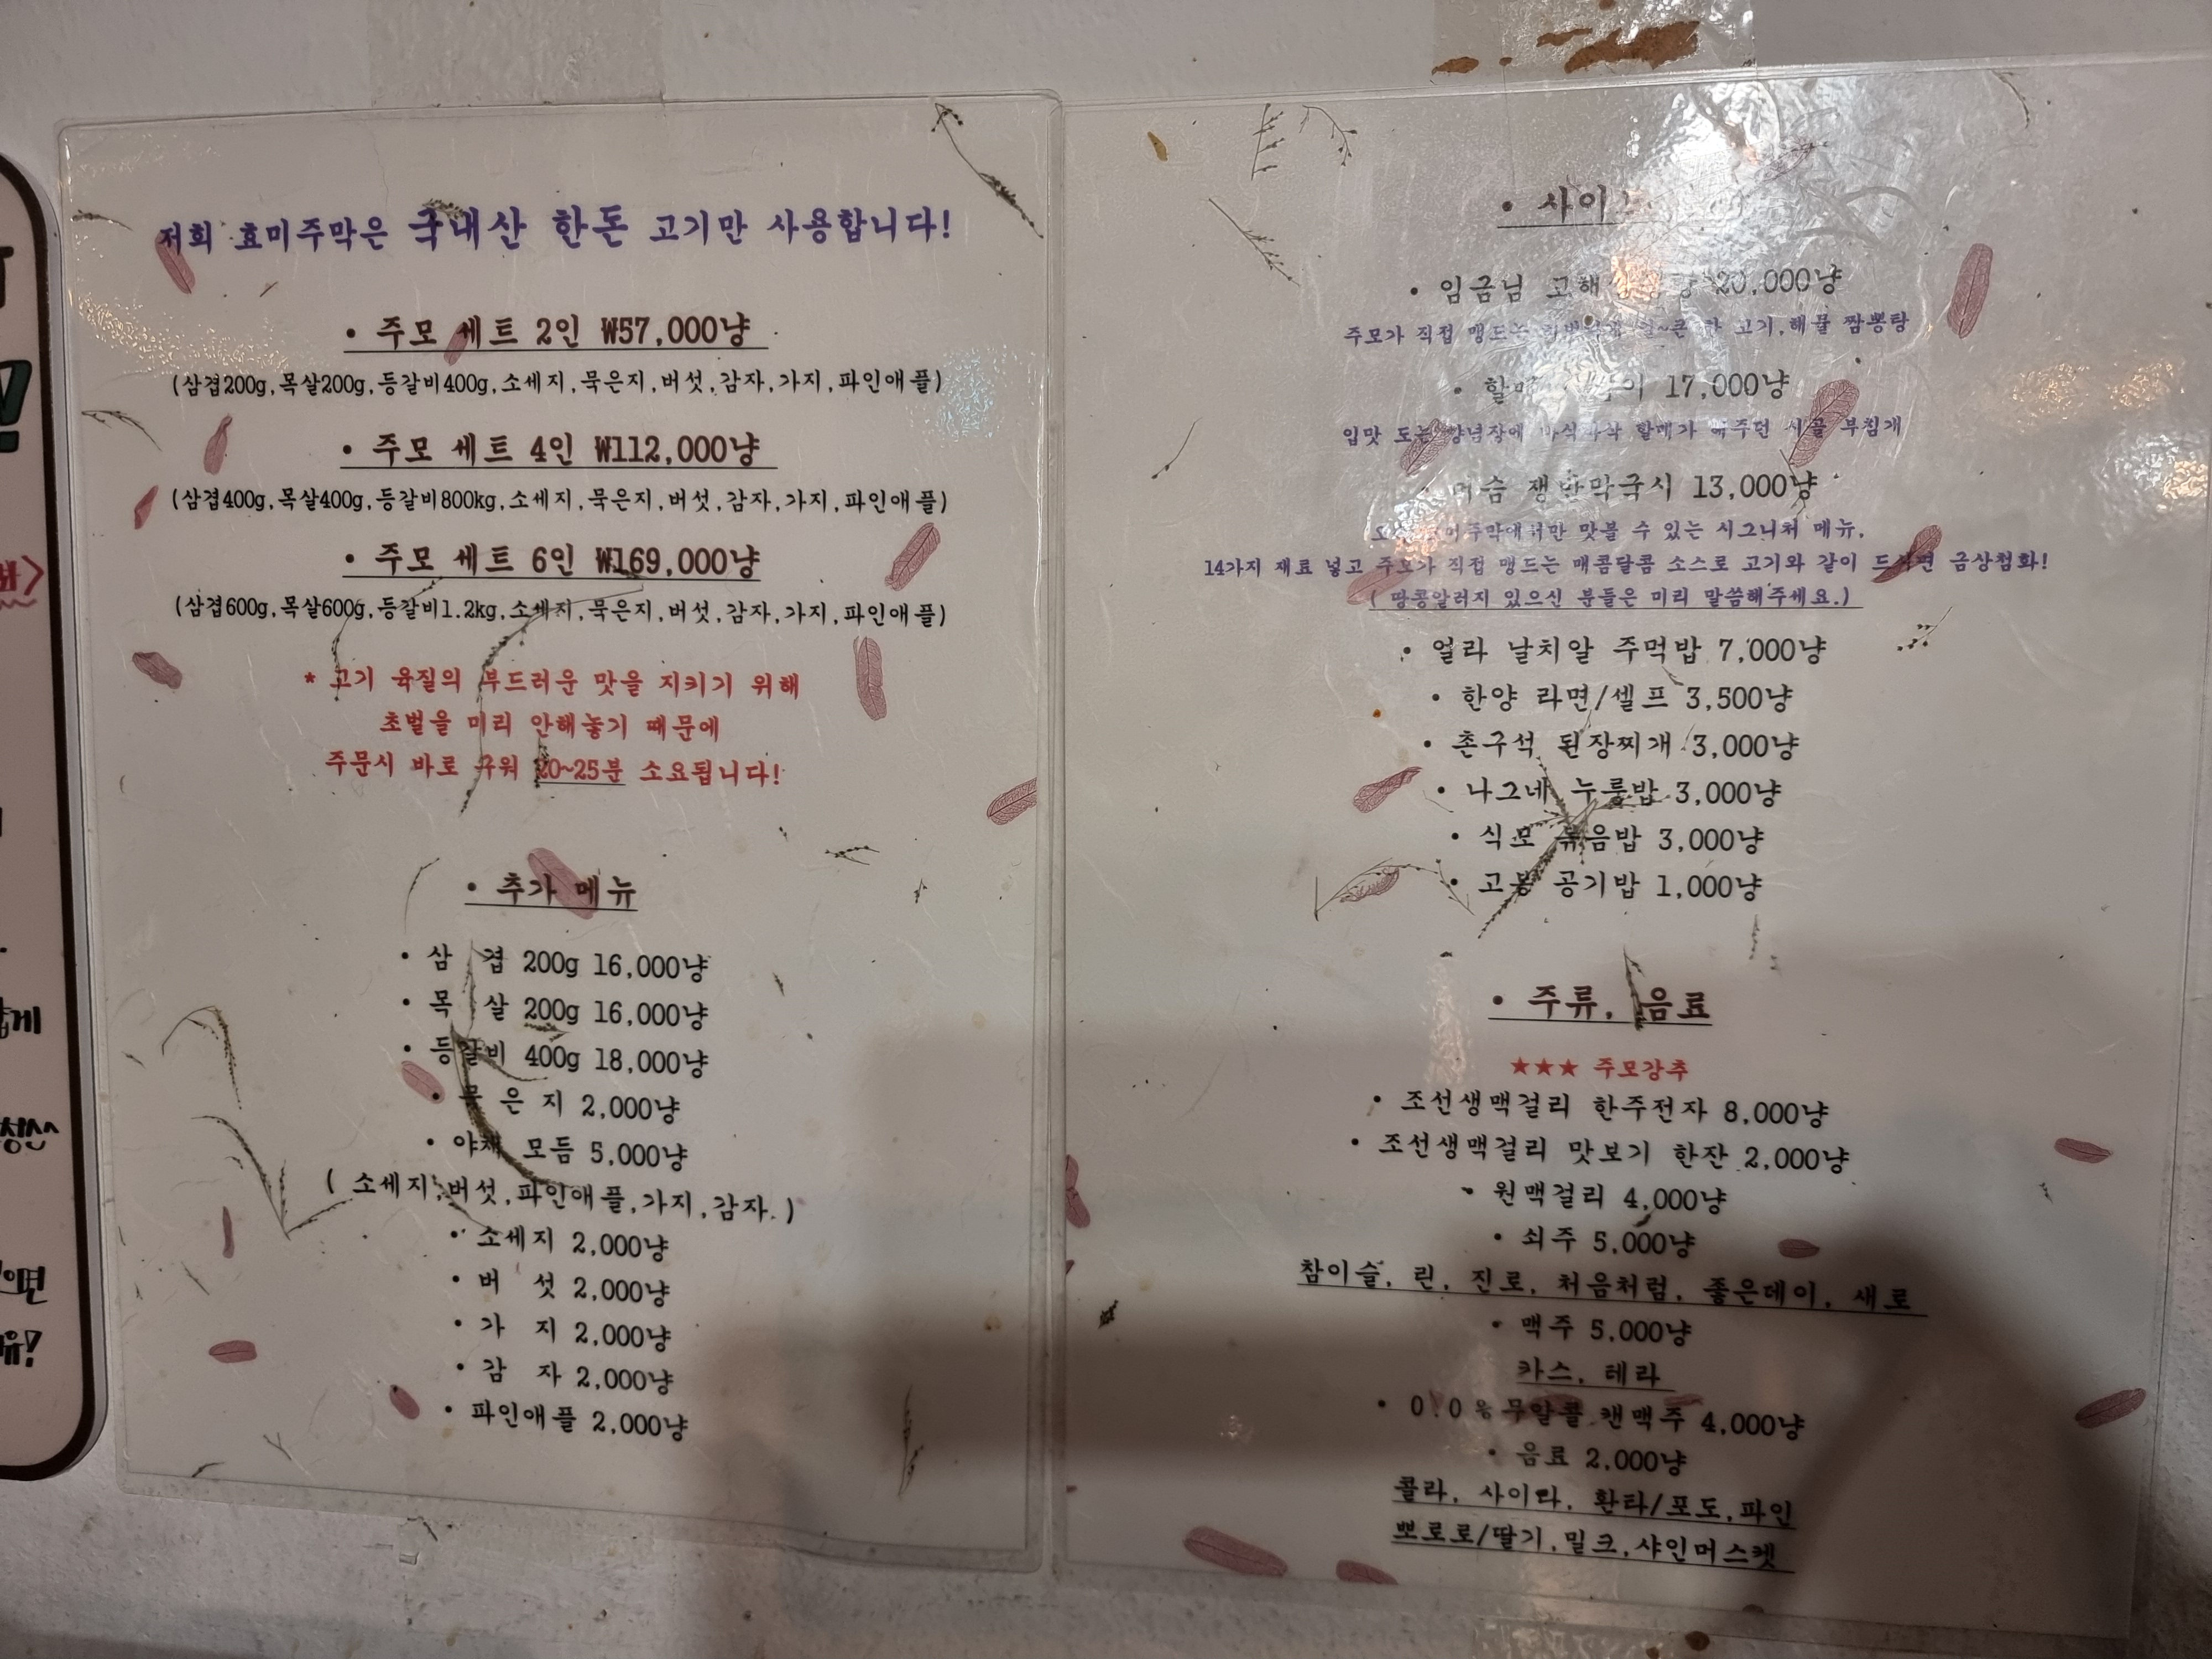 저희 효미주막은 국내산 한돈 고기만 사용합니다!
• 주모 세트 2인 ₩57,000냥
(삼겹200g,목살200g,등갈비400g,소세지,묵은지,버섯,감자,가지,파인애플)
• 주모 세트 4인 ₩112,000냥
(삼겹400g,목살400g,등갈비800kg,소세지,묵은지,버섯,감자,가지,파인애플)
• 주모 세트 6인 ₩169,000냥
(삼겹600g,목살600g,등갈비1.2kg,소세지,묵은지,버섯,감자,가지,파인애플)
* 고기 육질의 부드러운 맛을 지키기 위해
초벌을 미리 안해놓기 때문에
주문시 바로 구워 20~25분 소요됩니다!
• 추가 메뉴
• 삼 겹 200g 16,000냥
• 목 살 200g 16,000냥
• 등갈비 400g 18,000냥
• 묵 은 지 2,000냥
• 야채 모듬 5,000냥
( 소세지,버섯,파인애플,가지,감자.)
• 소세지 2,000냥
• 버 섯 2,000냥
• 가 지 2,000냥
• 감 자 2,000냥
• 파인애플 2,000냥
• 임금님 20,000냥
주모가 직접 맹드는 고기,해물 짬뽕탕
• 17,000냥
입맛 도는 양념장에 바삭바삭 할매가 해주던 시골 부침개
머슴 쟁반막국시 13,000냥
맛볼 수 있는 시그니처 메뉴.
14가지 재료 넣고 주모가 직접 맹드는 매콤달콤 소스로 고기와 같이 드시면 금상첨화!
( 땅콩알러지 있으신 분들은 미리 말씀해주세요.)
• 얼라 날치알 주먹밥 7,000냥
• 한양 라면/셀프 3,500냥
• 촌구석 된장찌개 3,000냥
• 나그네 누룽밥 3,000냥
• 식모 볶음밥 3,000냥
• 고봉 공기밥 1,000냥
• 주류, 음료
★★★ 주모강추
• 조선생맥걸리 한주전자 8,000냥
• 조선생맥걸리 맛보기 한잔 2,000냥
• 원맥걸리 4,000냥
• 쇠주 5,000냥
참이슬, 린, 진로, 처음처럼, 좋은데이, 새로
• 맥주 5,000냥
카스, 테라
• 0.0%무알콜 캔맥주 4,000냥
• 음료 2,000냥
콜라, 사이다, 환타/포도,파인
뽀로로/딸기,밀크,샤인머스켓